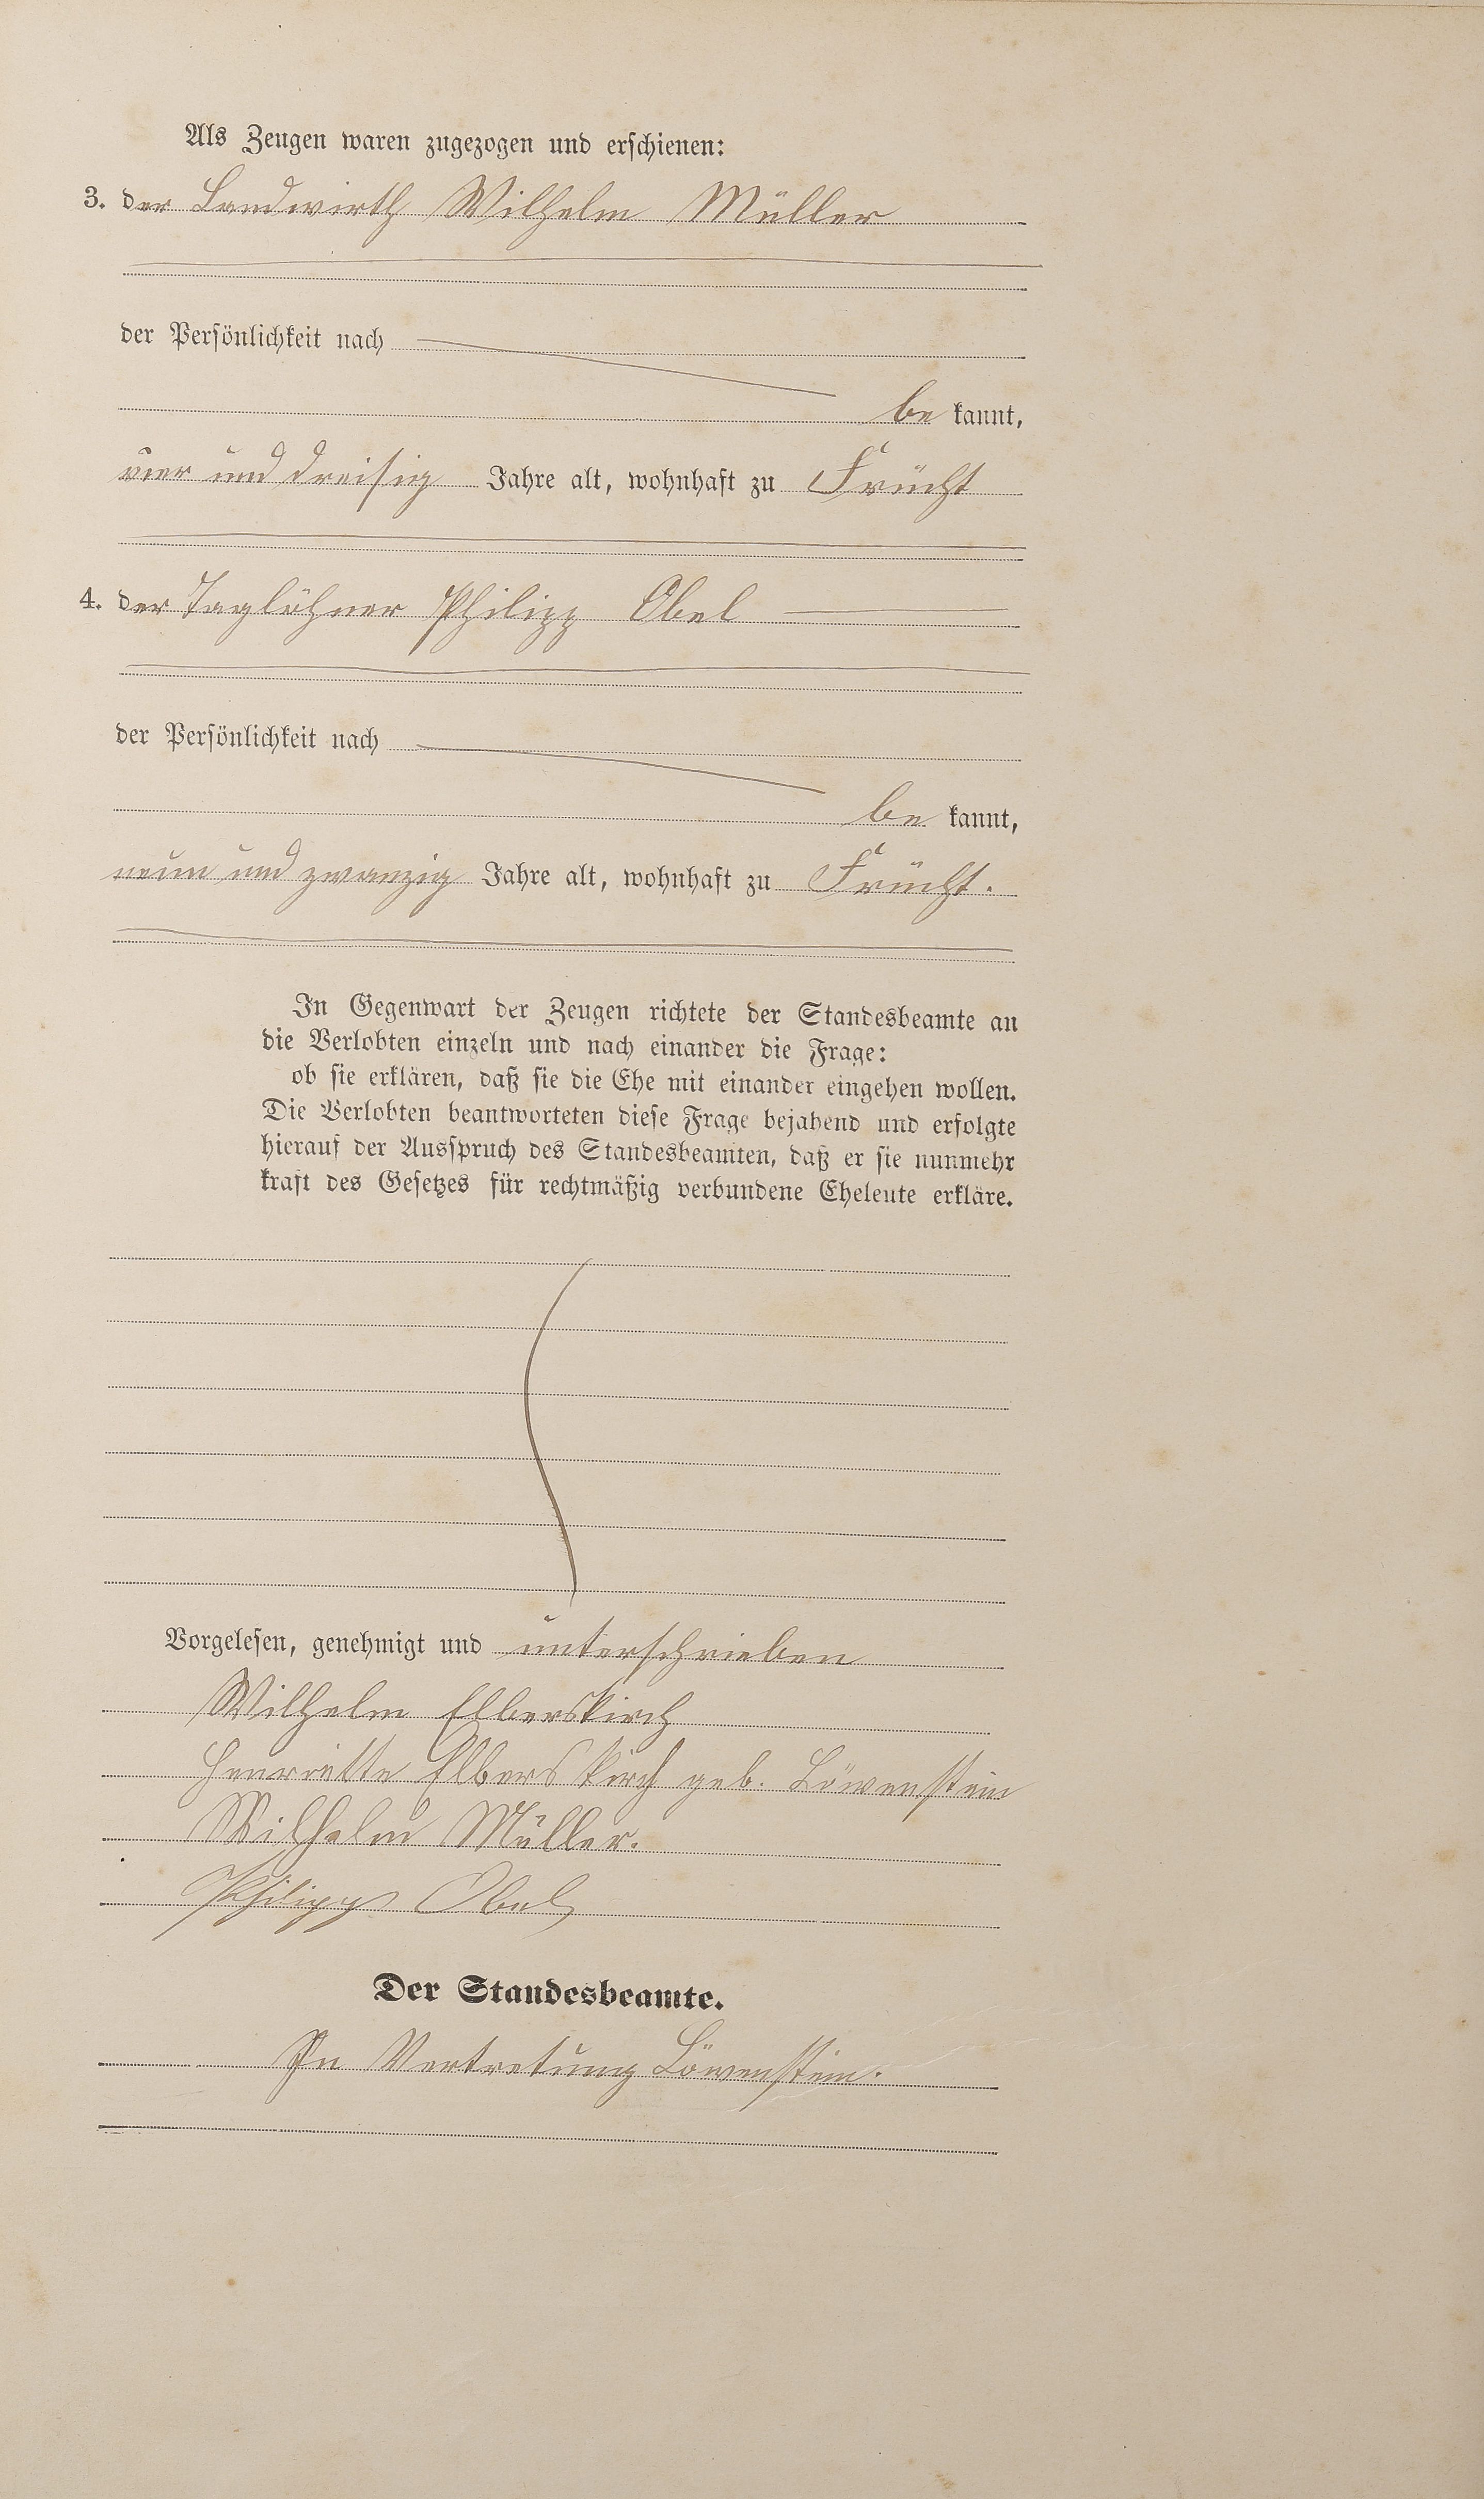 Als Zeugen waren zugezogen und erschienen:
3. der Landwirth Wilhelm Müller
der Persönlichkeit nach
be kannt,
vier und dreisig Jahre alt, wohnhaft zu Frücht
4. der Taglöhner Philipp Obel
der Persönlichkeit nach
be kannt,
neun und zwanzig Jahre alt, wohnhaft zu Frücht.
In Gegenwart der Zeugen richtete der Standesbeamte an
die Verlobten einzeln und nach einander die Frage:
ob sie erklären, daß sie die Ehe mit einander eingehen wollen.
Die Verlobten beantworteten diese Frage bejahend und erfolgte
hierauf der Ausspruch des Standesbeamten, daß er sie nunmehr
kraft des Gesetzes für rechtmäßig verbundene Eheleute erkläre.
Vorgelesen, genehmigt und unterschrieben
Wilhelm Elberskirch
Henriette Elberskirch geb. Löwenstein
Wilhelm Müller.
Philipp Obel
Der Standesbeamte.
In Vertretung Löwenstein.